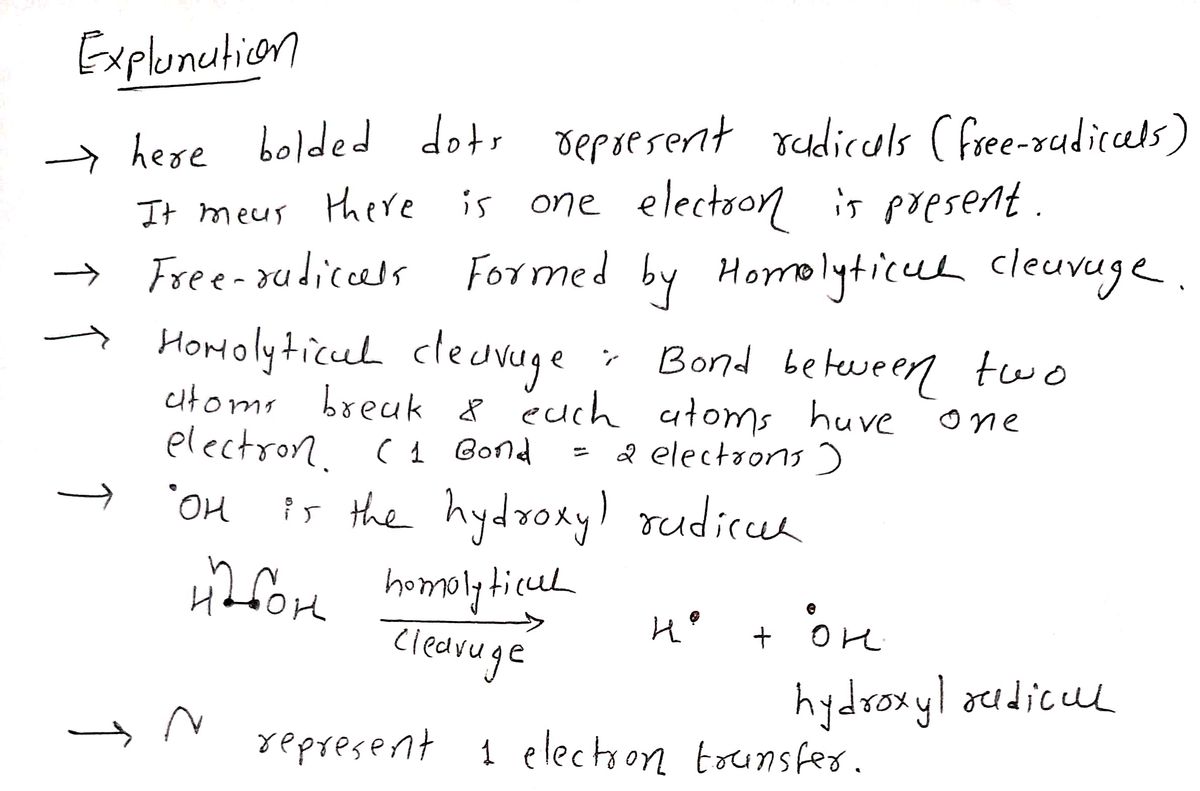 Explanation
→ here bolded dots represent radicals (free-radicals)
It meas there is one electron is present.
→ Free-radicals Formed by Homolytical cleavage.
→ Homolytical cleavage : Bond between two
atoms break & each atoms have one
electron. (1 Bond = 2 electrons)
→ •OH is the hydroxyl radical
H OH homolytical H• + •OH
cleavage
hydroxyl radical
→ represent 1 electron transfer.